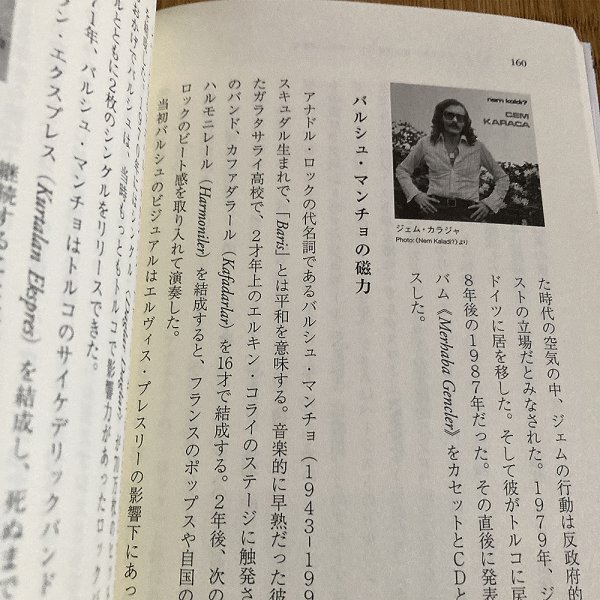 160
nem kaldi?
CEM
KARACA
ジェム・カラジャ
Photo:《Nem Kaladi?》より
た時代の空気の中、ジェムの行動は反政府的
ストの立場だとみなされた。1979年、ジ
ドイツに居を移した。そして彼がトルコに戻
8年後の1987年だった。その直後に発表
バム《Merhaba Gencler》をカセットとCDと
スした。
バルシュ・マンチョの磁力
アナドル・ロックの代名詞であるバルシュ・マンチョ（1943-199
スキュダル生まれで、「Baris」とは平和を意味する。音楽的に早熟だった彼
たガラタサライ高校で、2才年上のエルキン・コライのステージに触発さ
のバンド、カファダラール（Kafadarlar）を16才で結成する。2年後、次の
ハルモニレール（Harmoniler）を結成すると、フランスのポップスや自国の
ロックのビート感を取り入れて演奏した。
当初バルシュのビジュアルはエルヴィス・プレスリーの影響下にあっ
おかげでバルシュは、当時もっともトルコで影響力があったロック
ルとともに2枚のシングルをリリースできた。
71年、バルシュ・マンチョはトルコのサイケデリックバンド
ン・エクスプレス（Kurtalan Ekspres）を結成し、死ぬまで
継続する